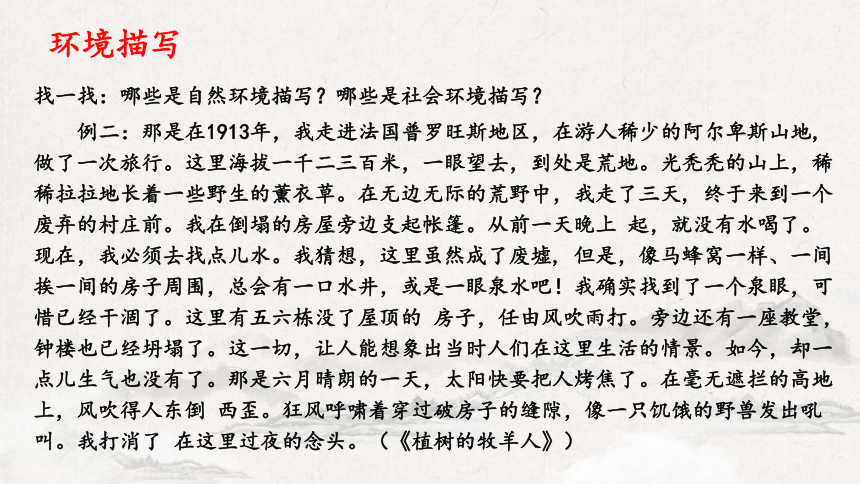 环境描写
找一找：哪些是自然环境描写？哪些是社会环境描写？
例二：那是在1913年，我走进法国普罗旺斯地区，在游人稀少的阿尔卑斯山地，
做了一次旅行。这里海拔一千二三百米，一眼望去，到处是荒地。光秃秃的山上，稀
稀拉拉地长着一些野生的薰衣草。在无边无际的荒野中，我走了三天，终于来到一个
废弃的村庄前。我在倒塌的房屋旁边支起帐篷。从前一天晚上 起，就没有水喝了。
现在，我必须去找点儿水。我猜想，这里虽然成了废墟，但是，像马蜂窝一样、一间
挨一间的房子周围，总会有一口水井，或是一眼泉水吧！我确实找到了一个泉眼，可
惜已经干涸了。这里有五六栋没了屋顶的 房子，任由风吹雨打。旁边还有一座教堂，
钟楼也已经坍塌了。这一切，让人能想象出当时人们在这里生活的情景。如今，却一
点儿生气也没有了。那是六月晴朗的一天，太阳快要把人烤焦了。在毫无遮拦的高地
上，风吹得人东倒 西歪。狂风呼啸着穿过破房子的缝隙，像一只饥饿的野兽发出吼
叫。我打消了 在这里过夜的念头。（《植树的牧羊人》）